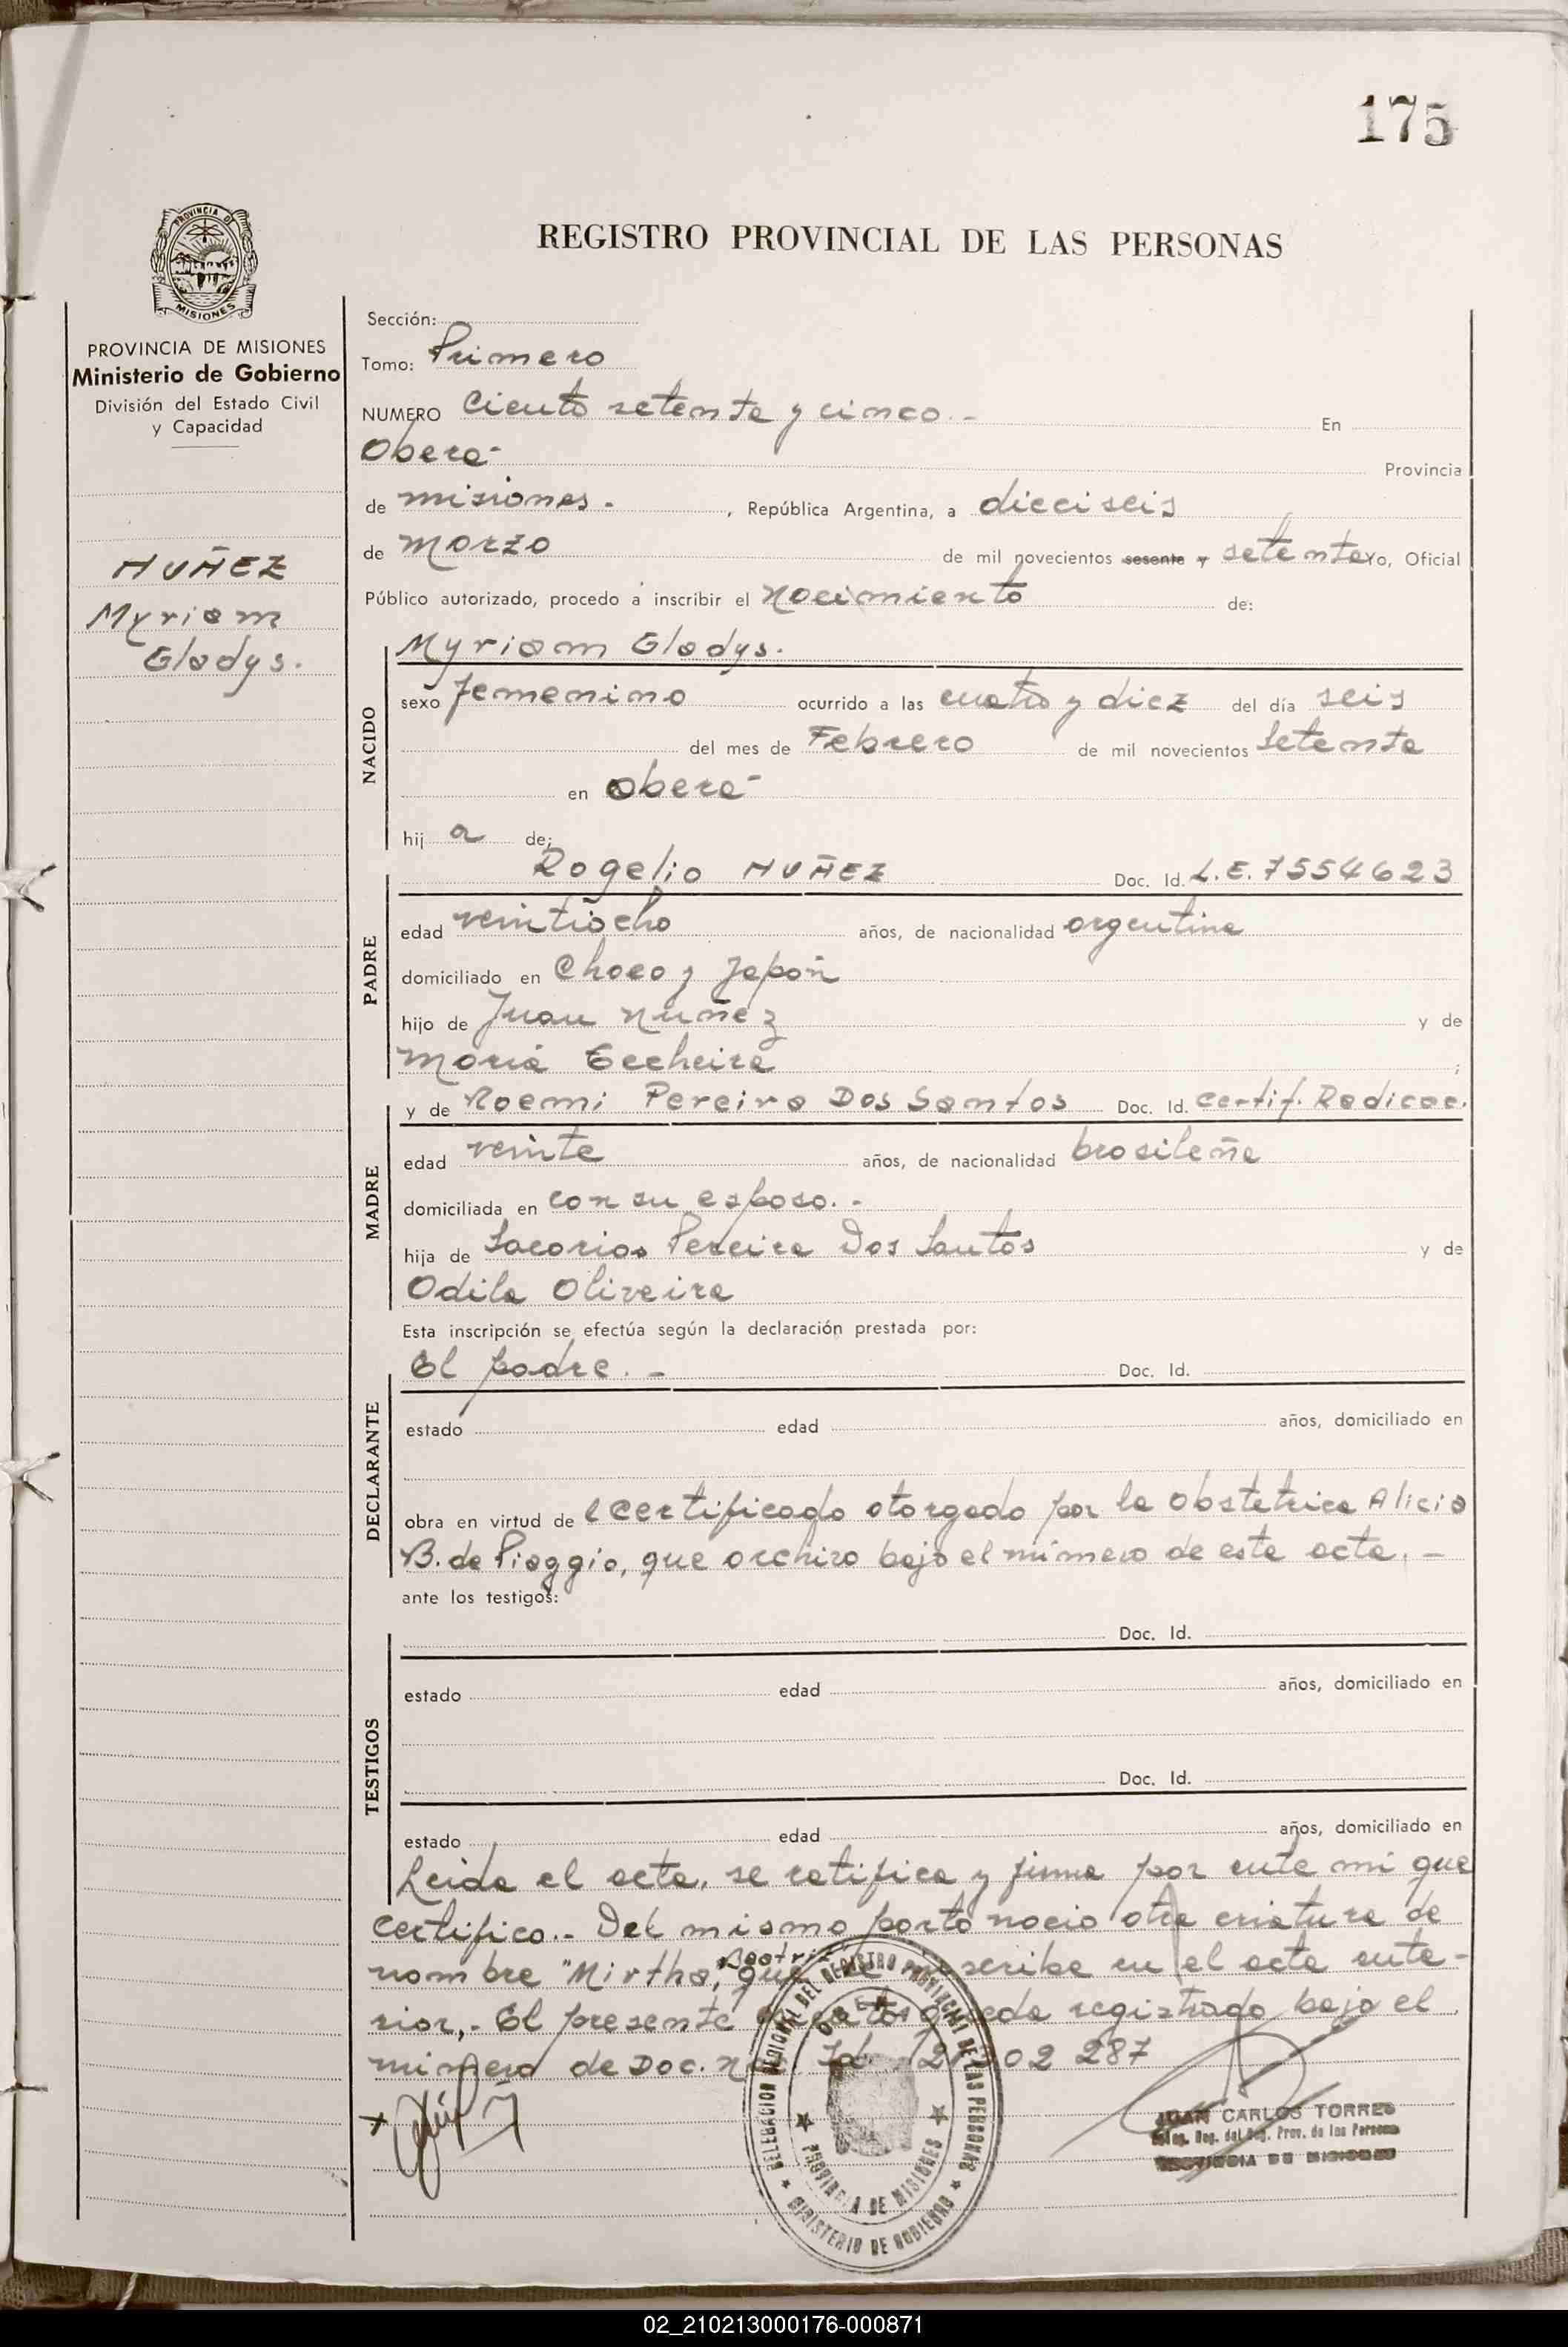 175
PROVINCIA DE
MISIONES
REGISTRO PROVINCIAL DE LAS PERSONAS
PROVINCIA DE MISIONES
Ministerio de Gobierno
División del Estado Civil
y Capacidad
NUÑEZ
Myriam
Gladys.
Sección:
Tomo: Primero
NUMERO Ciento setenta y cinco.- En
Oberá Provincia
de misiones. , República Argentina, a dieciseis
de marzo de mil novecientos sesenta y setenta yo, Oficial
Público autorizado, procedo a inscribir el nacimiento de:
NACIDO
Myriam Gladys.
sexo femenino ocurrido a las cuatro y diez del día seis
del mes de Febrero de mil novecientos setenta
en Oberá
hij a de;
PADRE
Rogelio NUÑEZ Doc. Id. L.E. 7554623
edad veintiocho años, de nacionalidad argentina
domiciliado en Chaco y Japón
hijo de Juan Nuñez y de
María Eccheira ;
MADRE
y de Noemi Pereira Dos Santos Doc. Id. Certif. Radicac.
edad veinte años, de nacionalidad brasileña
domiciliada en con su esposo.-
hija de Pereira Dos Santos y de
Odila Oliveira
Esta inscripción se efectúa según la declaración prestada por:
DECLARANTE
El padre.- Doc. Id.
estado edad años, domiciliado en
obra en virtud de certificado otorgado por la obstetrica Alicia
B. de Piaggio, que archivo bajo el número de esta acta.-
ante los testigos:
TESTIGOS
Doc. Id.
estado edad años, domiciliado en
Doc. Id.
estado edad años, domiciliado en
Leida el acta, se ratifica y firma por ante mi que
certifico.- Del mismo parto nació otra criatura de
Beatriz
nombre "Mirtha, que se inscribe en el acta ante-
rior,.- El presente queda registrado bajo el
número de Doc. 02 287
DELEGACION REGIONAL DEL REGISTRO PROVINCIAL DE LAS PERSONAS
OBERA
PROVINCIA DE MISIONES
MINISTERIO DE GOBIERNO
JUAN CARLOS TORRES
Deleg. Reg. del Reg. Prov. de las Personas
PROVINCIA DE MISIONES
02_210213000176-000871